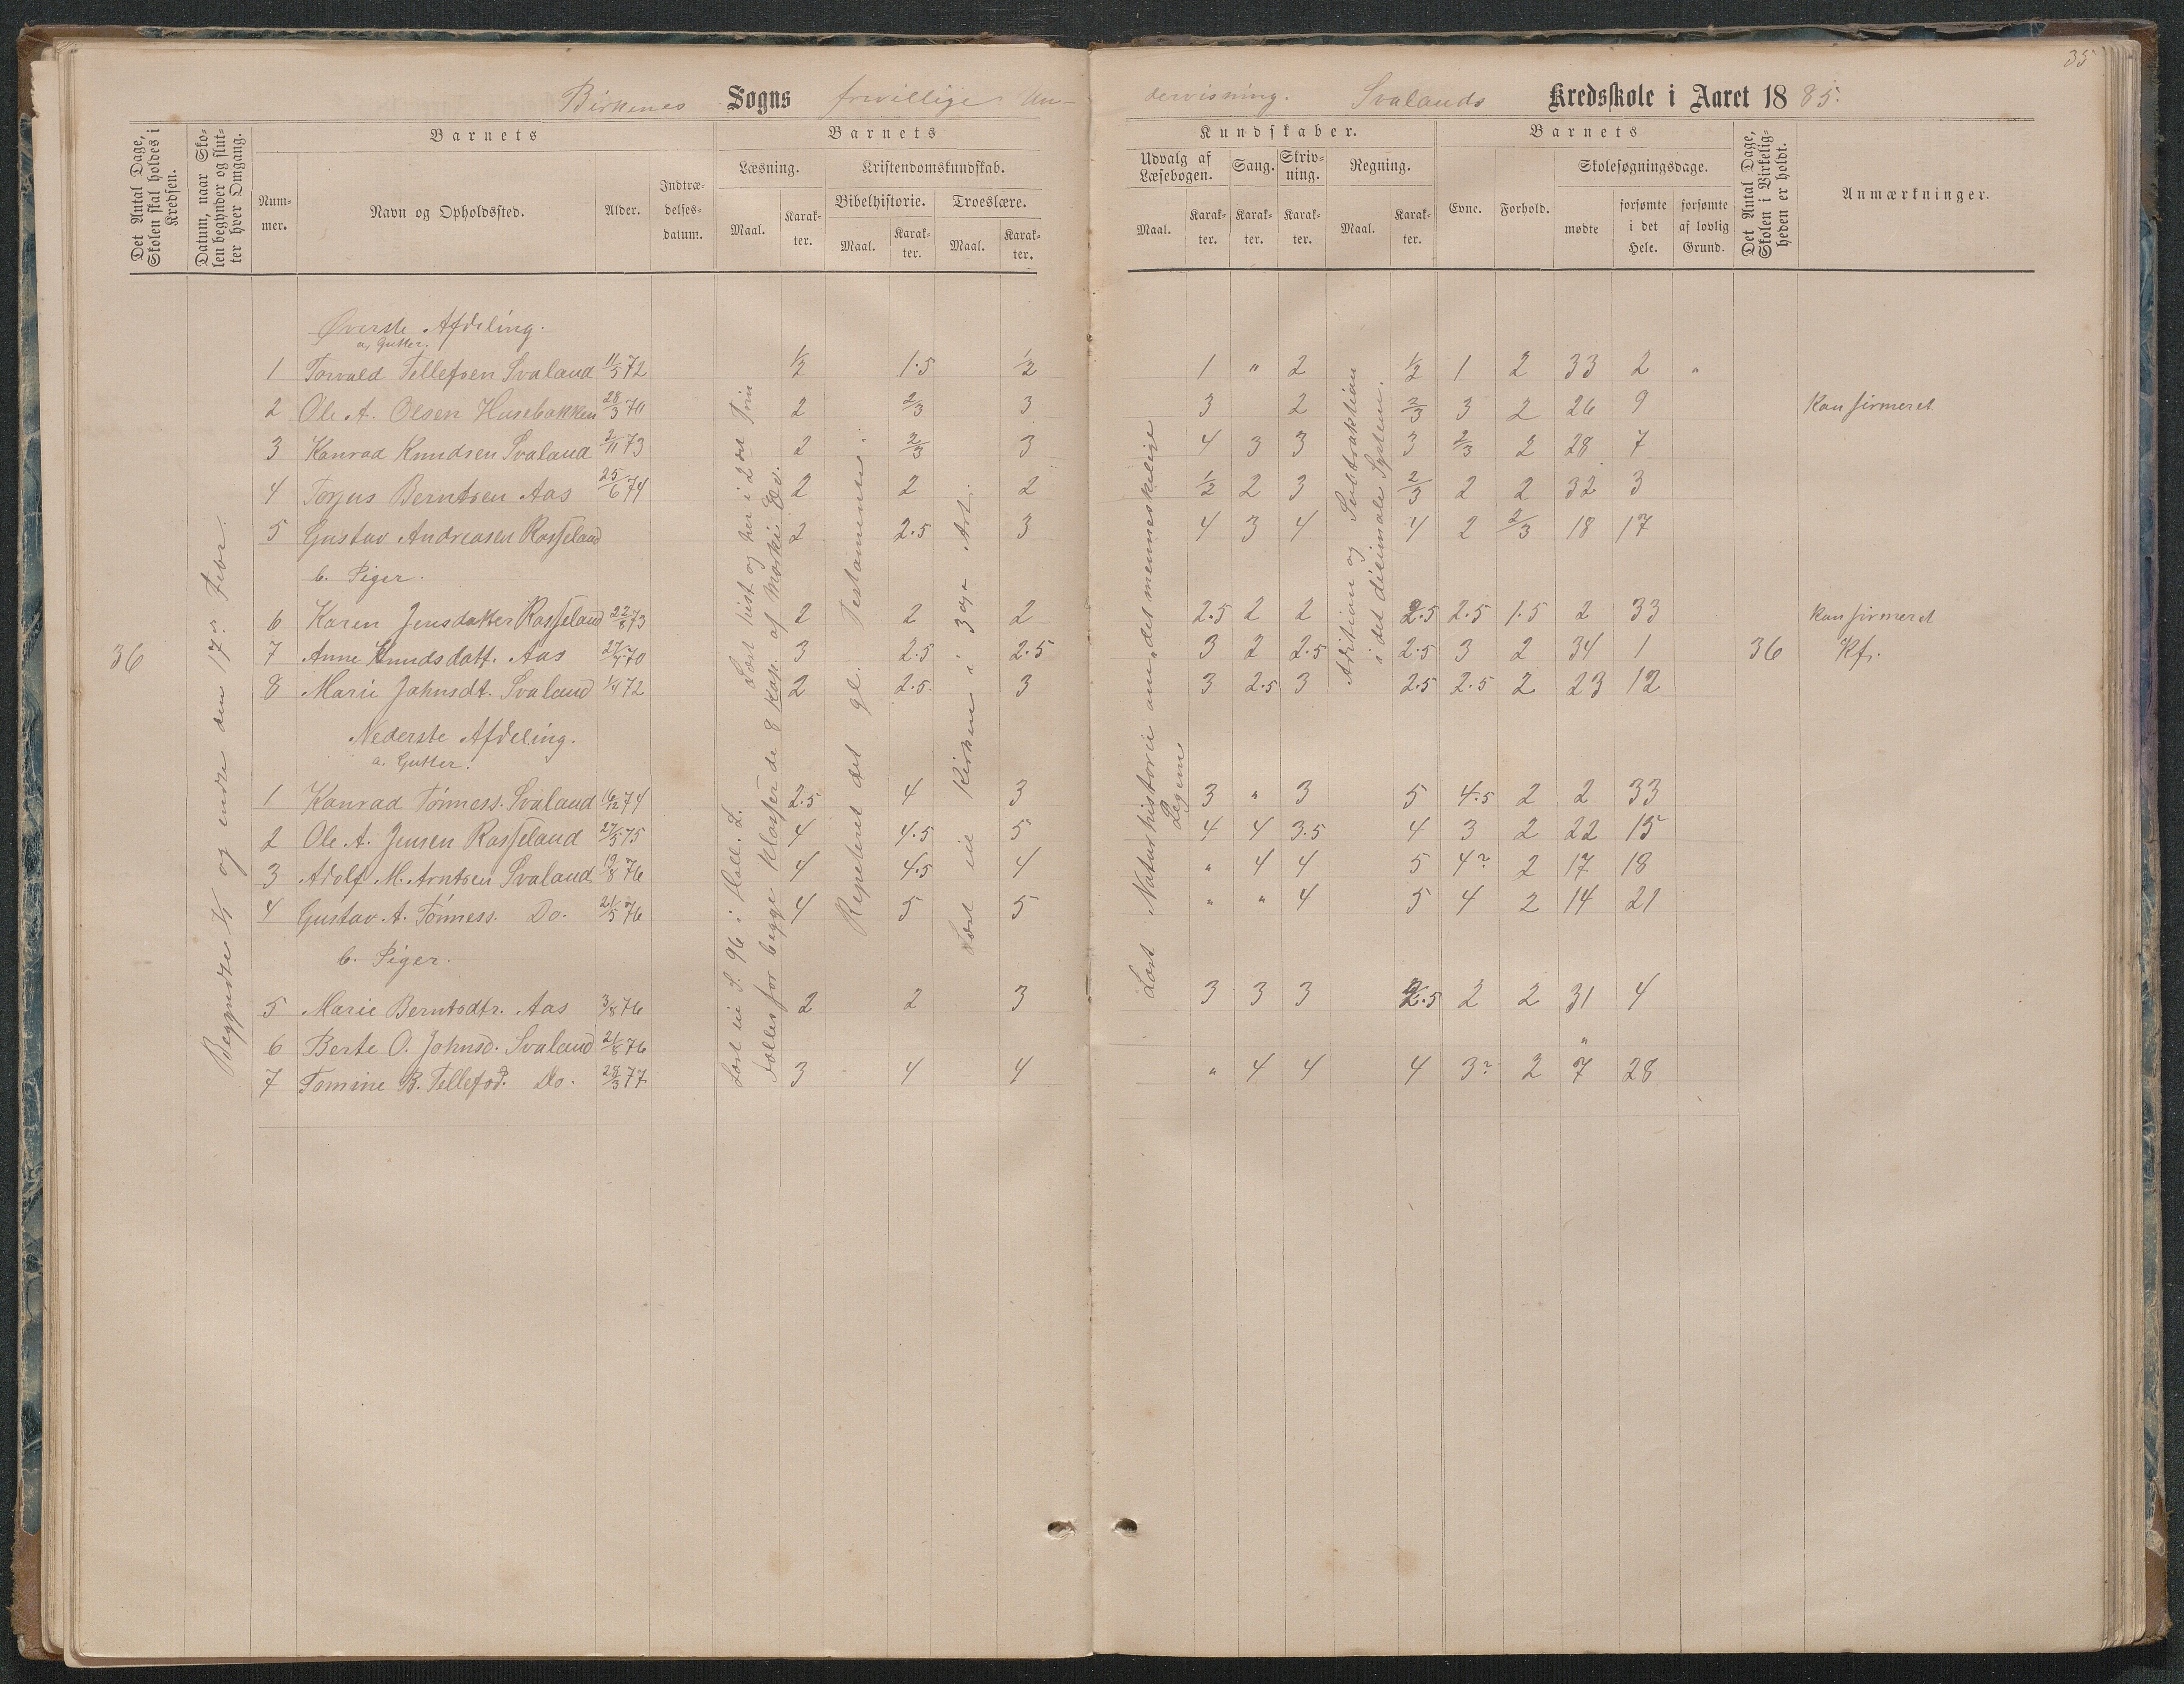 35
Birkenes Sogns frivillige Un-
dervisning. Svalands Kredsskole i Aaret 1885.
Det Antal Dage, Skolen skal holdes i Kredsen.
Datum, naar Skolen begynder og slutter hver Omgang.
Barnets
Nummer.
Navn og Opholdssted.
Alder.
Indtrædelsesdatum.
Barnets
Læsning.
Maal.
Karakter.
Kristendomskundskab.
Bibelhistorie.
Maal.
Karakter.
Troeslære.
Maal.
Karakter.
Kundskaber.
Udvalg af Læsebogen.
Maal.
Karakter.
Sang.
Karakter.
Skrivning.
Karakter.
Regning.
Maal.
Karakter.
Barnets
Evne.
Forhold.
Skolesøgningsdage.
mødte
forsømte i det Hele.
forsømte af lovlig Grund.
Det Antal Dage, Skolen i Virkeligheden er holdt.
Anmærkninger.
Øverste Afdeling.
a, Gutter.
1 Torvald Tellefsen Svaland 11/5 72 1/2 1.5 1/2 1 " 2 1/2 1 2 33 2 "
2 Ole A. Olsen Husebakken 28/3 70 2 2/3 3 3 2 2/3 3 2 26 9 Konfirmeret
3 Konrad Knudsen Svaland 2/11 73 2 2/3 3 4 3 3 3 2/3 2 28 7
4 Torjus Berntsen Aas 25/6 74 2 2 2 1/2 2 3 2/3 2 2 32 3
5 Gustav Andreasen Rosseland 2 2.5 3 4 3 4 4 2 2/3 18 17
b. Piger.
6 Karen Jensdatter Rosseland 22/8 73 2 2 2 2.5 2 2 2.5 2.5 1.5 2 33 konfirmeret
36 7 Anne Knudsdatt. Aas 27/4 70 3 2.5 2.5 3 2 2.5 2.5 3 2 34 1 36 Kf.
8 Marie Johnsdt. Svaland 1/4 72 2 2.5 3 3 2.5 3 2.5 2.5 2 23 12
Nederste Afdeling.
a. Gutter.
1 Konrad Tönness. Svaland 16/12 74 2.5 4 3 3 " 3 5 4.5 2 2 33
2 Ole A. Jensen Rosseland 27/5 75 4 4.5 5 4 4 3.5 4 3 2 22 15
3 Adolf M. Arntsen Svaland 19/8 76 4 4.5 4 " 4 4 5 4? 2 17 18
4 Gustav A. Tönness. Do. 21/5 76 4 5 5 " " 4 5 4 2 14 21
b. Piger.
5 Marie Berntsdtr. Aas 3/8 76 2 2 3 3 3 3 2.5 2 2 31 4
6 Berte O. Johnsd. Svaland 21/8 76 "
7 Tomine B. Tellefsd. Do. 28/3 77 3 4 4 " 4 4 4 3? 2 7 28
Begyndte og endte den 17de Febr.
Læst til S. 96 i Læseb. Læst hist og her i 2det Trin
fælles for begge Klasser de 8 Kap. af Marki Ev.
Repeteret det gl. Testamente.
Læst til Kirken i 3die Art.
Læst Naturhistorie om "det menneskelige
Legeme
Addition og Subtraktion
i det decimale System.